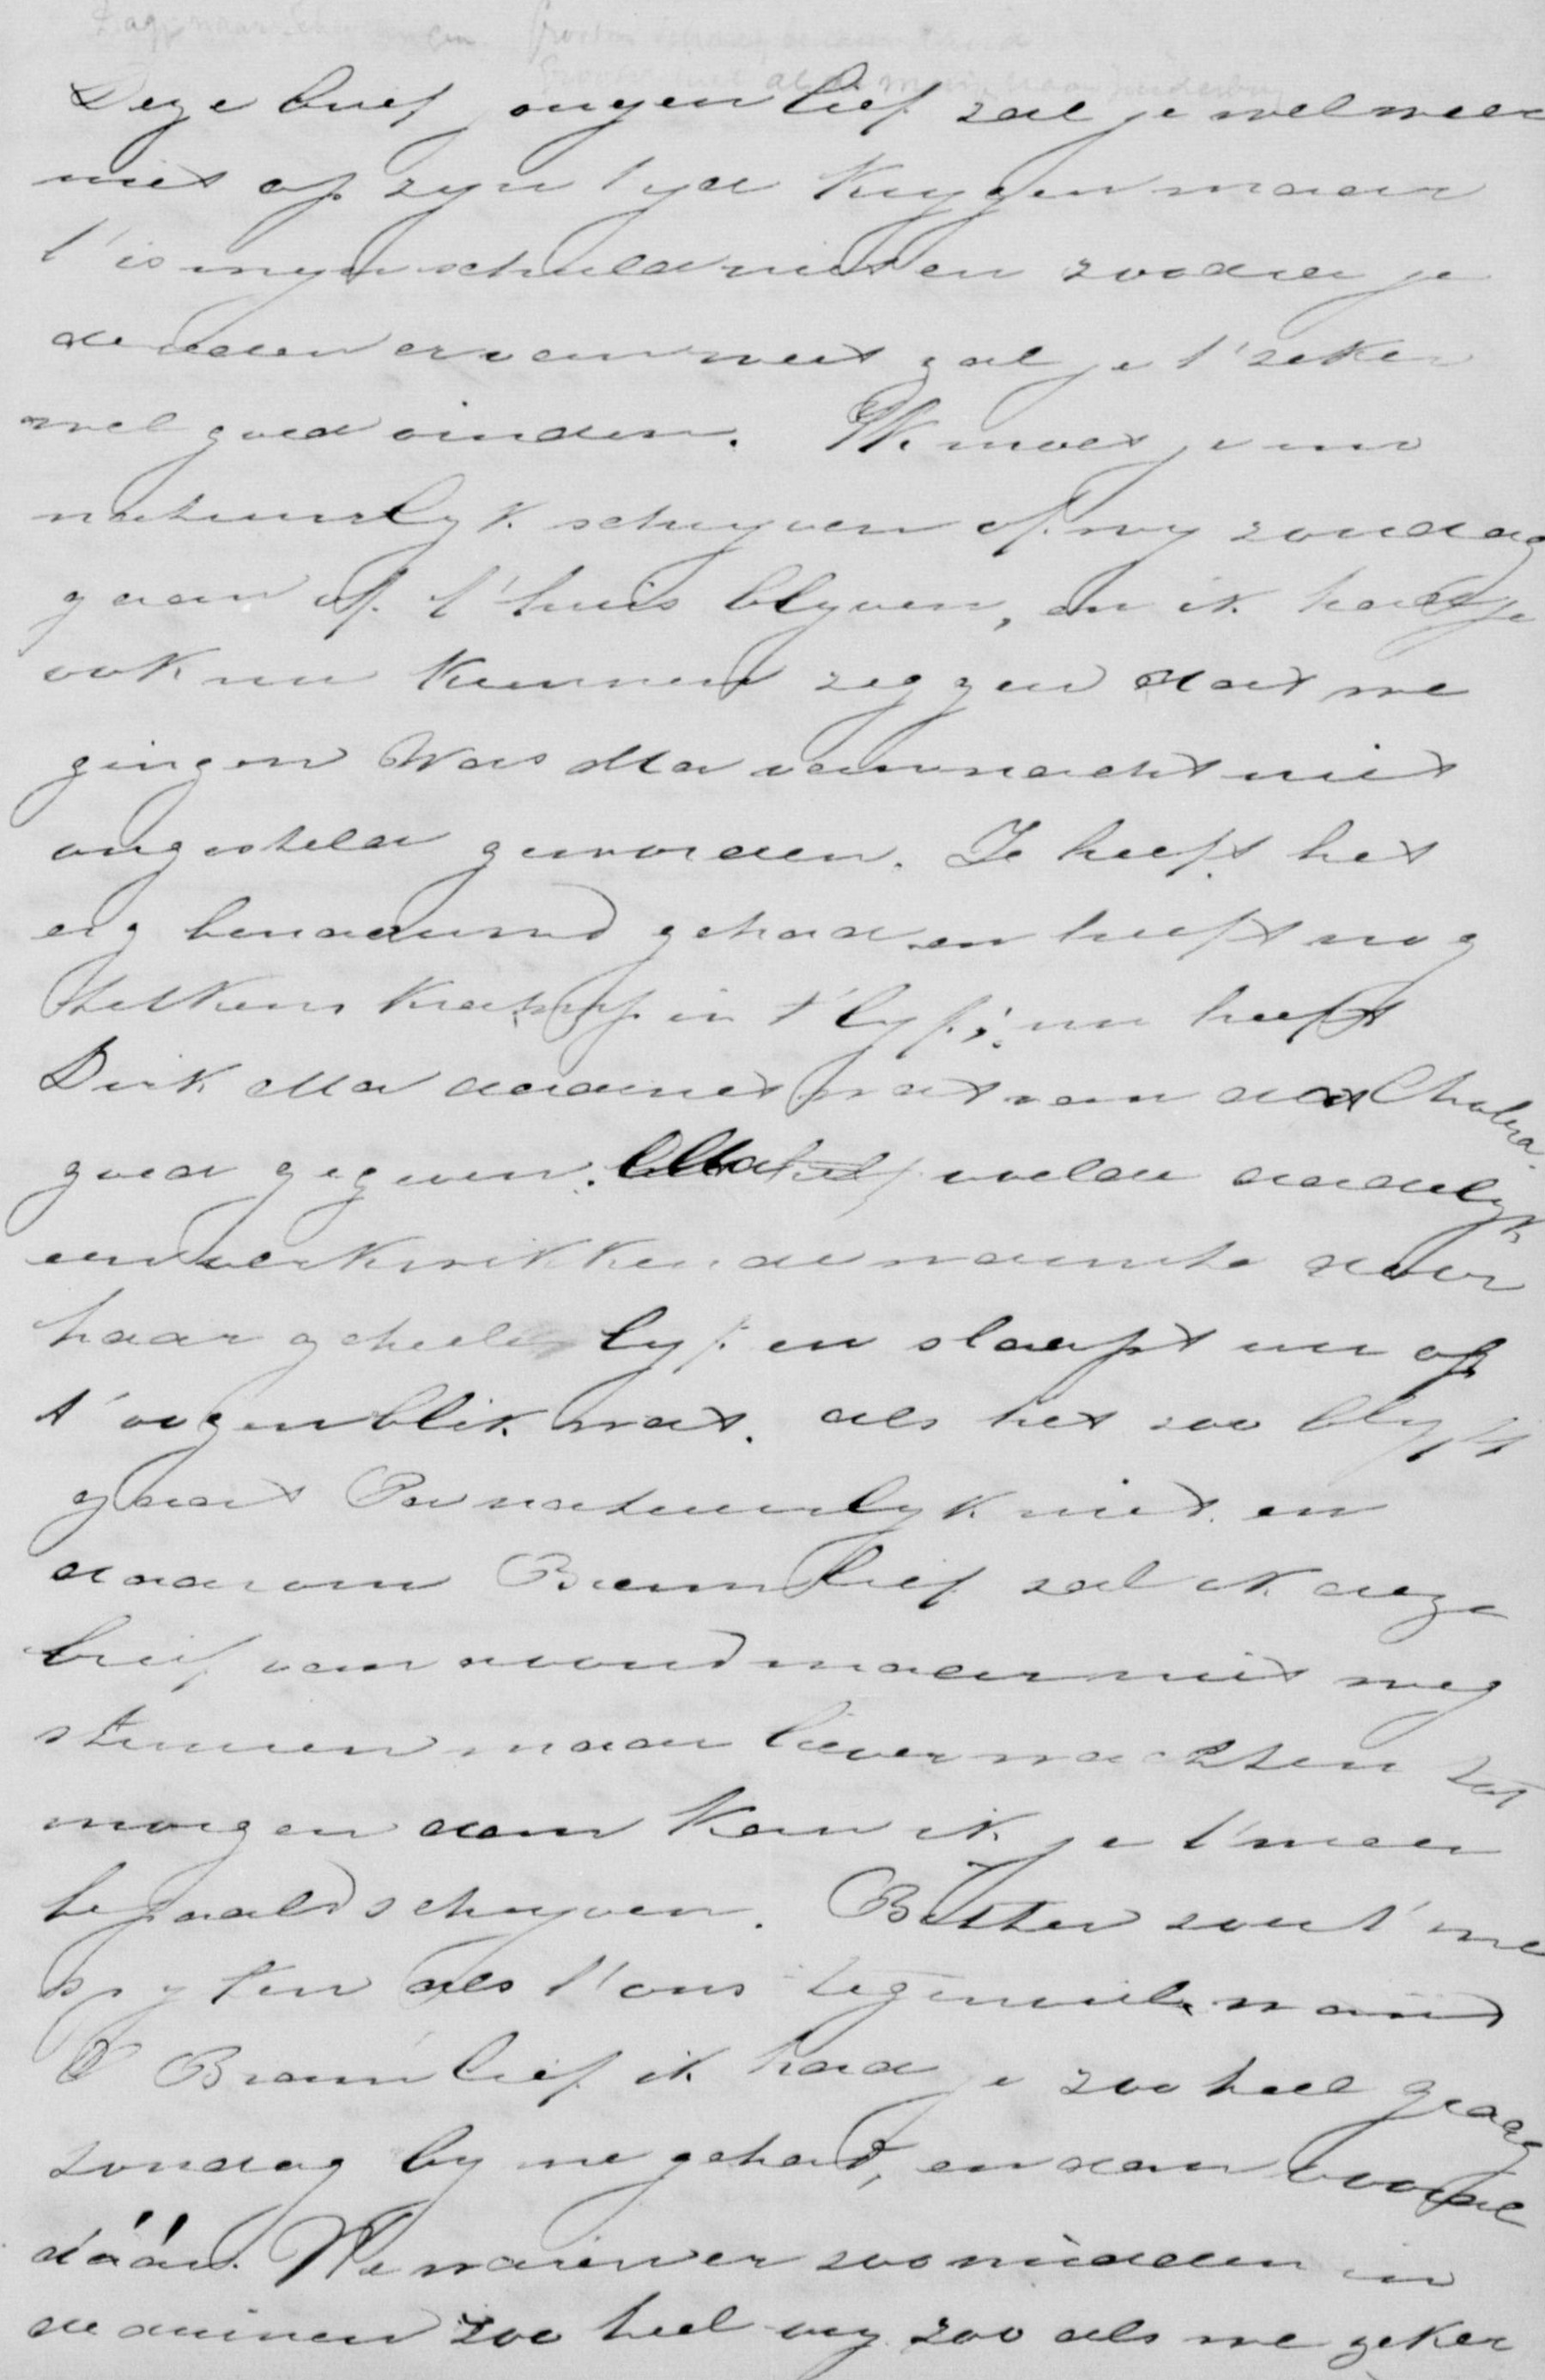 Deze brief jongen lief zal je wel weer
niet op zyn tyd krygen maar
t'is myn schuld niet en zoodra je
de reden ervan weet zal je t'zeker
wel goed vinden. Ik moest je nu
natuurlyk schryven of wy zondag
gaan of t'huis blyven, en ik had je
ook nu kunnen zeggen dat we
gingen Was Ma vannacht niet
ongesteld geworden. Ze heeft het
erg benaauwd gehad en heeft nog
telkens kramp in t'lyf; nu heeft
Dirk Ma daarnet wat van dat Cholera
goed gegeven. Ma voelde dadelyk
een verkwikkende warmte door
haar geheele lyf en slaapt nu op
t'oogenblik wat. als het zoo blyft
gaat Pa natuurlyk niet en
daarom Bram lief zal ik deze
brief van avond maar niet weg
sturen maar liever wachten tot
morgen dan kan ik je t'meer
bepaald schryven. Bitter zou t'me
spyten als t'ons tegenviel want
O Bram lief ik had je zoo heel graag
zondag by me gehad, en dan vooral
dáár. We waren er zoo midden in
de duinen zoo heel vry zoo als we zeker